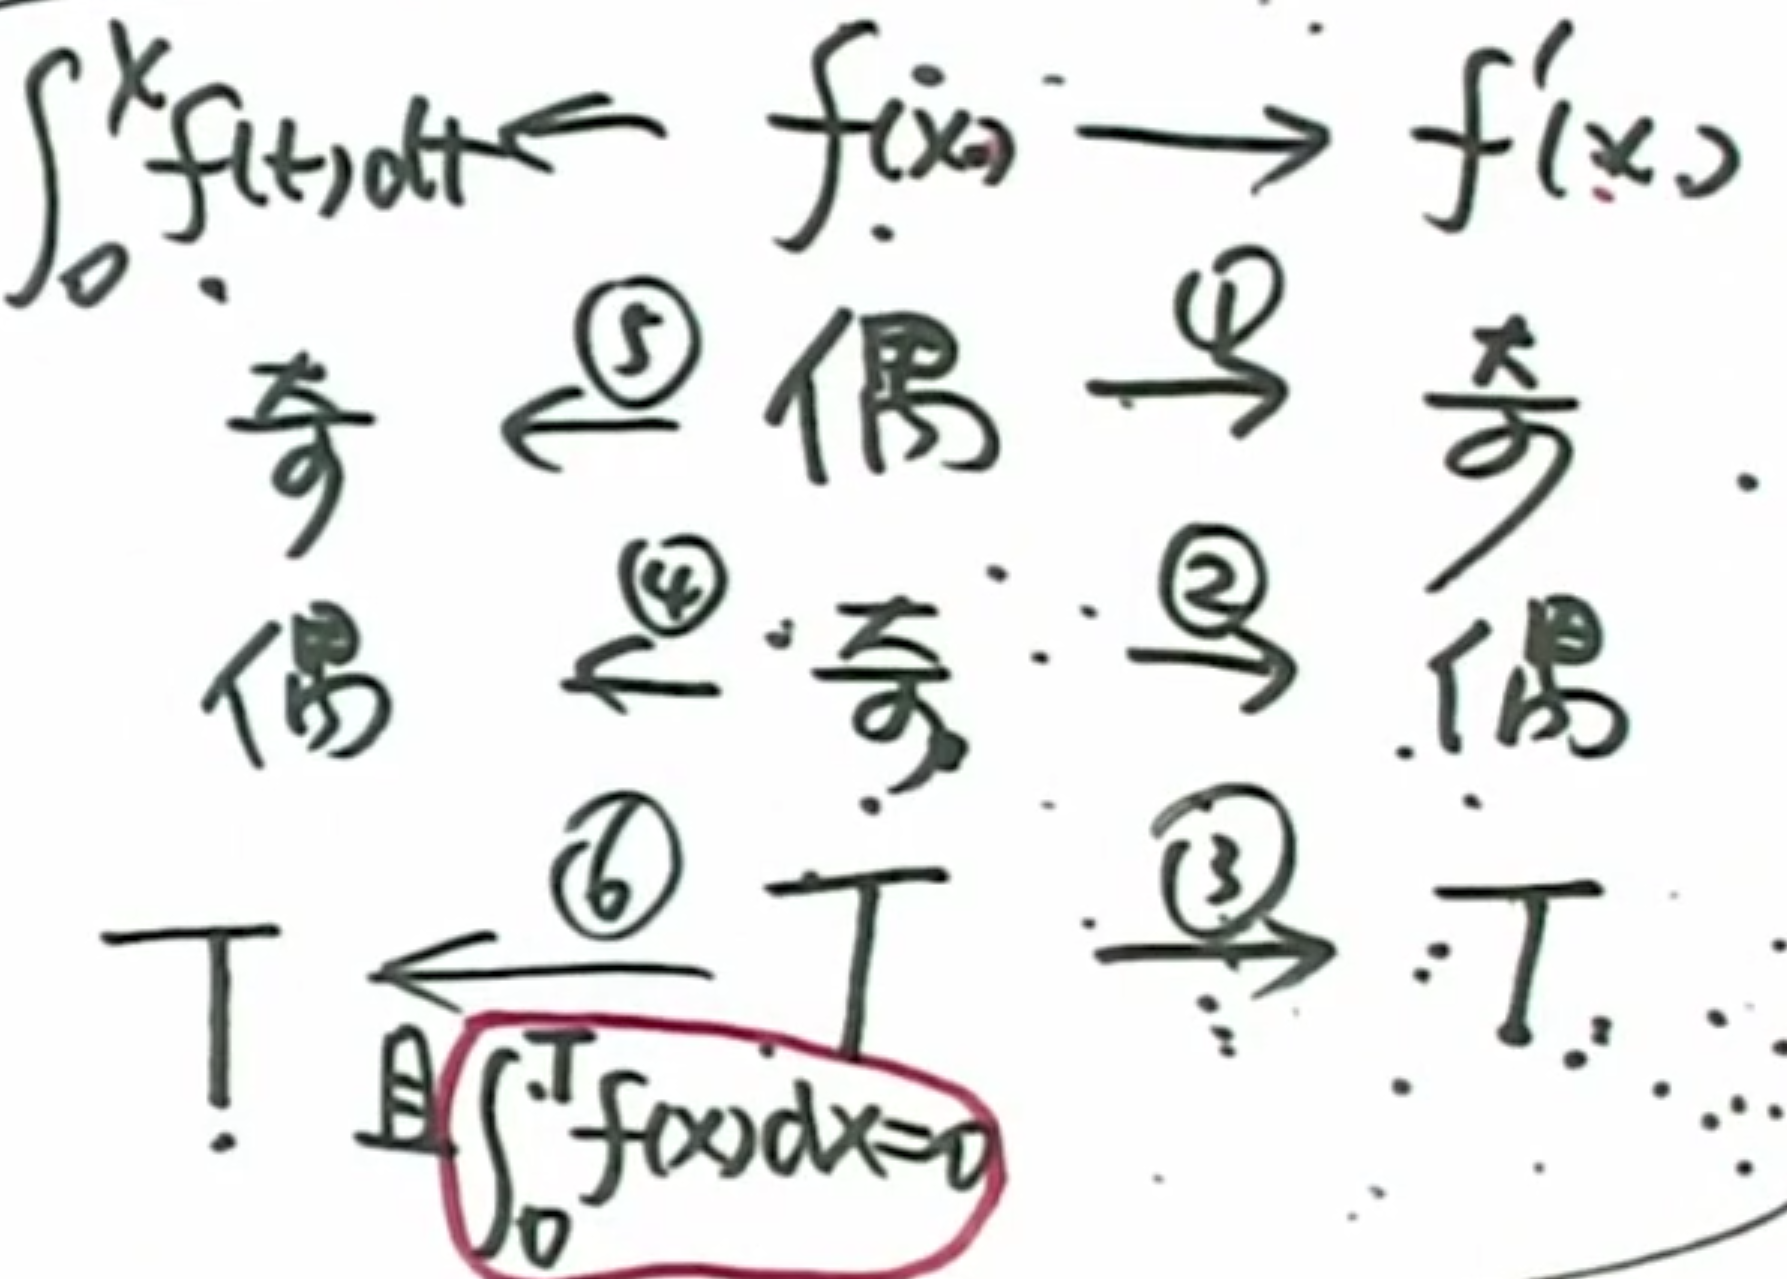 ∫₀ˣ f(t)dt ← f(x) → f'(x)
奇 ←⑤ 偶 ①→ 奇
偶 ←④ 奇 ②→ 偶
T ←⑥ T ③→ T
且 ∫₀ᵀ f(x)dx=0